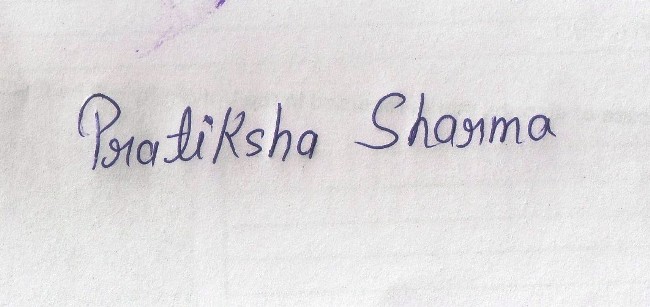 Pratiksha Sharma